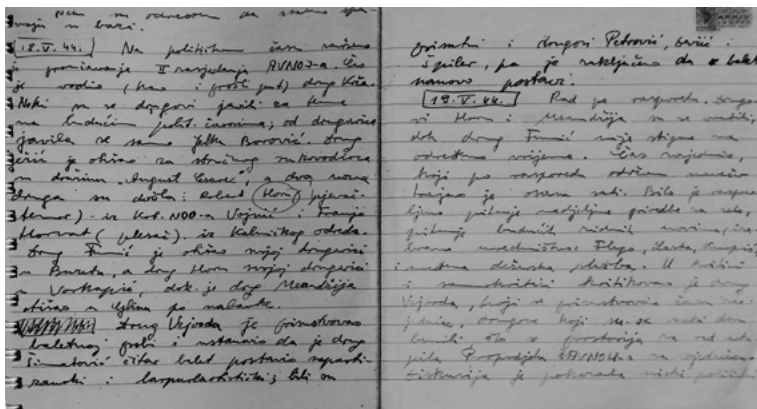 nem su određeni da stalno
vaju u bazi.
18.V.44. Na političkom času
je proučavanje II zasjedanja AVNOJ-a. Čas
je vodio (kao i prošli put) drug
Neki su se drugovi javili za teme
na budućim polit. časovima; od drugarica
javila se samo Jelka Borović. Drug
Jerić je otišao za stručnog rukovodioca
u družinu "August Cesarec", a dva nova
druga su došla: Robert Horn (pjevač-
tenor) iz Kot. NOO-a Vojnić i Franjo
Horvat (plesač) iz Kalničkog odreda.
Drug je otišao svojoj drugarici
u a drug Horn svojoj drugarici
u Vorkapić, dok je drug Meandžija
otišao u Glinu po nabavke.
Drug Vejvoda je prisustvovao
baletnoj probi i ustanovio da je drug
Simatović čitav balet postavio neparti-
zanski i larpurlartistički; bili su
prisutni i drugovi Petrović, i
Špiler, pa je zaključeno da se balet
nanovo postavi.
19.V.44. Rad po rasporedu. Drugo-
vi Horn i Meandžija su se vratili,
dok drug nije stigao na
određeno vrijeme. Čas zajednice,
koji po rasporedu održan
trajao je osam sati. Bilo je
pitanje nedjeljne priredbe za selo,
pitanje budućih zidnih novina,
uredništvo: Flego,
i dežurna služba. U kritici
i samokritici kritikovao je drug
Vejvoda, koji je prisustvovao času
jednice, drugove koji su se neki dan
bunili što se prostorija za rad
Propodjela ZAVNOH-a za
Diskusija je pokazala niski politički